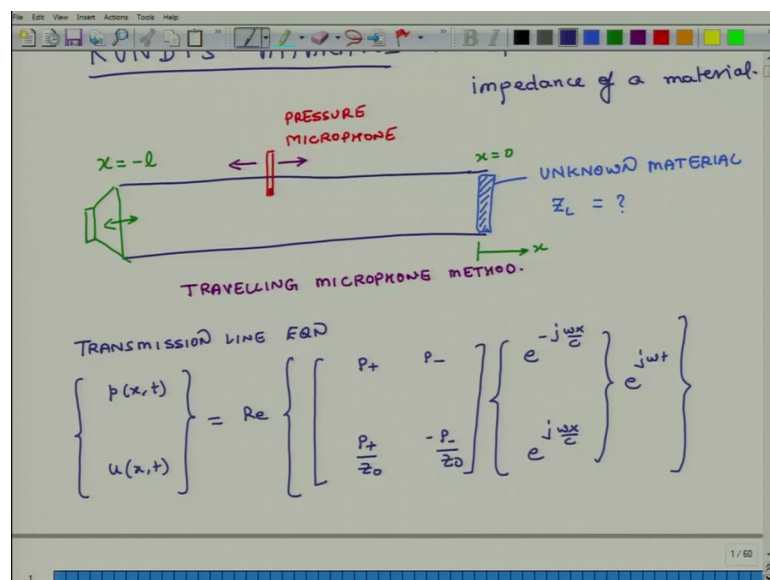 File Edit View Insert Actions Tools Help
B I
impedance of a material.
PRESSURE
MICROPHONE
x = -l
x = 0
UNKNOWN MATERIAL
Z_L = ?
x
TRAVELLING MICROPHONE METHOD.
TRANSMISSION LINE EQN
{ p(x,t) u(x,t) } = Re { [ P+ P- P+/Z0 -P-/Z0 ] { e^{-jωx/c} e^{jωx/c} } e^{jωt} }
1 / 60
1